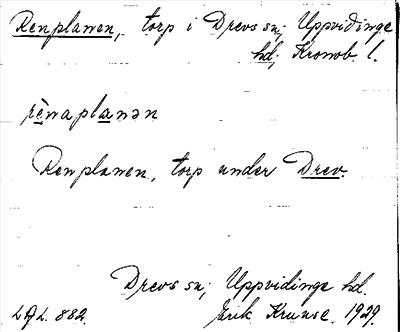 Renplanen, torp i Drevs sn; Uppvidinge
hd; Kronob. l.
rènaplanən
Renplanen, torp under Drev.
Drevs sn; Uppvidinge hd.
L.A.L. 882. Erik Kruuse. 1929.